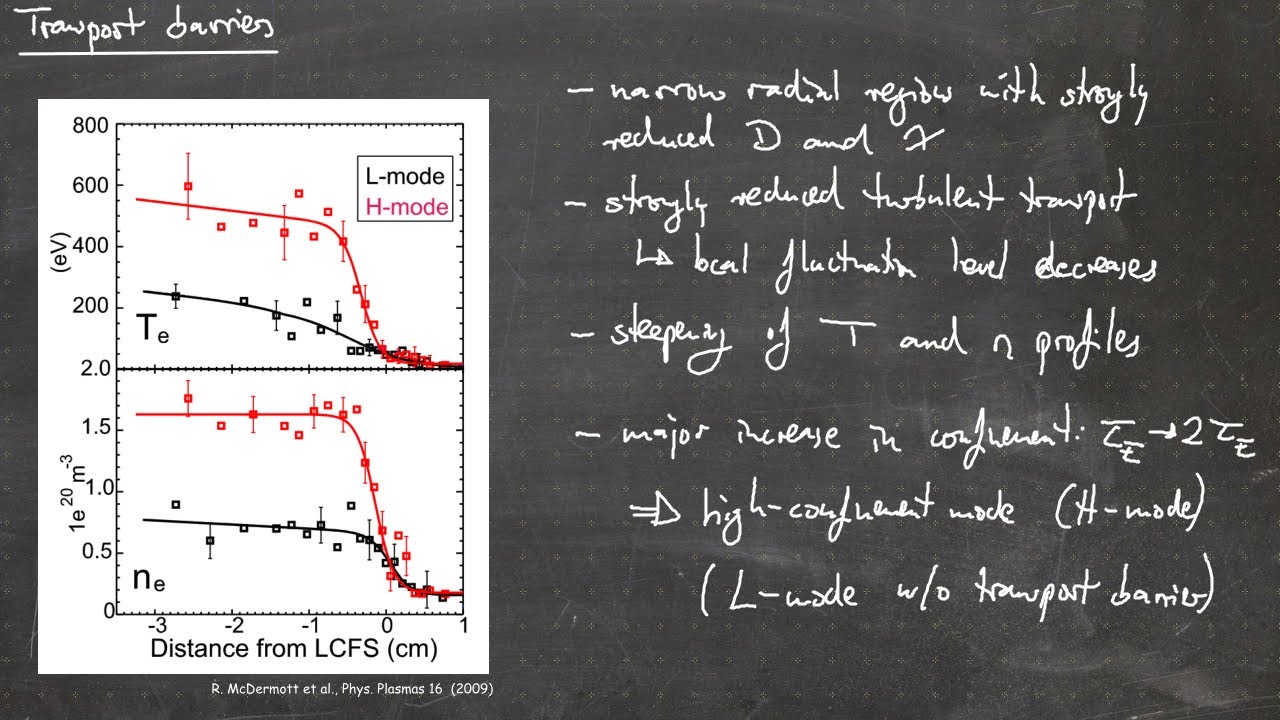 Transport barriers
800
600
400
200
2.0
(eV)
Te
L-mode
H-mode
1.5
1.0
0.5
0
1e20 m-3
ne
-3 -2 -1 0 1
Distance from LCFS (cm)
R. McDermott et al., Phys. Plasmas 16 (2009)
- narrow radial region with strongly
reduced D and χ
- strongly reduced turbulent transport
↳ local fluctuation level decreases
- steepening of T and n profiles
- major increase in confinement: τE → 2 τE
⇒ high-confinement mode (H-mode)
(L-mode w/o transport barrier)